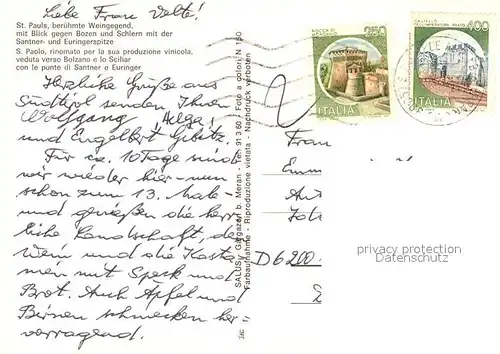 Liebe Frau Velte!
St. Pauls, berühmte Weingegend,
mit Blick gegen Bozen und Schlern mit der
Santner- und Euringerspitze
S. Paolo, rinomato per la sua produzione vinicola,
veduta verso Bolzano e lo Sciliar
con le punte di Santner e Euringer
Herzliche Grüße aus
Südtirol senden Ihnen
Wolfgang, Helga
und Engelbert
Für ca. 10 Tage sind
wir wieder hier – nun
schon zum 13. Male –
und genießen die herr-
liche Landschaft, de
Wein und die Kasta
nien mit Speck und
Brot. Auch Äpfel und
Birnen schmecken her-
vorragend.
SALUS, Gargazon b. Meran - Tel. 91 3 60 / Foto a colori N 190
Farbaufnahme - Riproduzione vietata - Nachdruck verboten
250
ITALIA
400
ITALIA
Frau
D 6200
privacy protection
Datenschutz